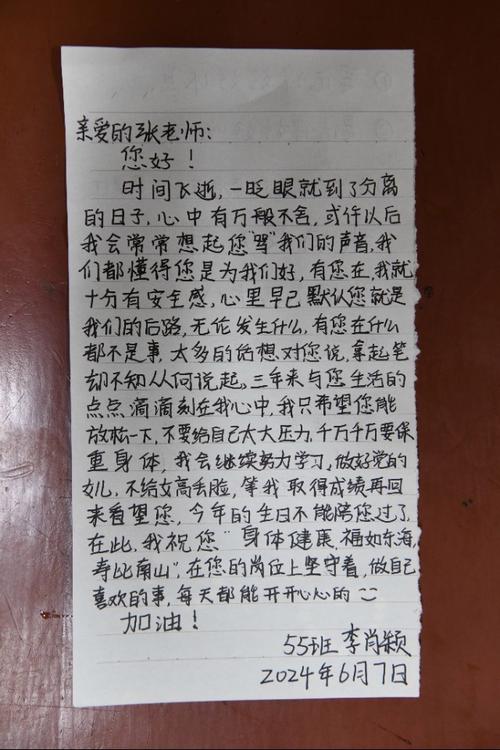 亲爱的张老师:
您好!
时间飞逝,一眨眼就到了分离
的日子,心中有万般不舍,或许以后
我会常常想起您"骂"我们的声音,我
们都懂得您是为我们好,有您在,我就
十分有安全感,心里早已默认您就是
我们的后路,无伦发生什么,有您在什么
都不是事,太多的话想对您说,拿起笔
却不知从何说起,三年来与您生活的
点点滴滴刻在我心中,我只希望您能
放松一下,不要给自己太大压力,千万千万要保
重身体,我会继续努力学习,做好党的
女儿,不给女高丢脸,等我取得成绩再回
来看望您,今年的生日不能陪您过了,
在此,我祝您"身体健康,福如东海,
寿比南山",在您的岗位上坚守着,做自己
喜欢的事,每天都能开开心心的
加油!
55班 李肖颖
2024年6月7日